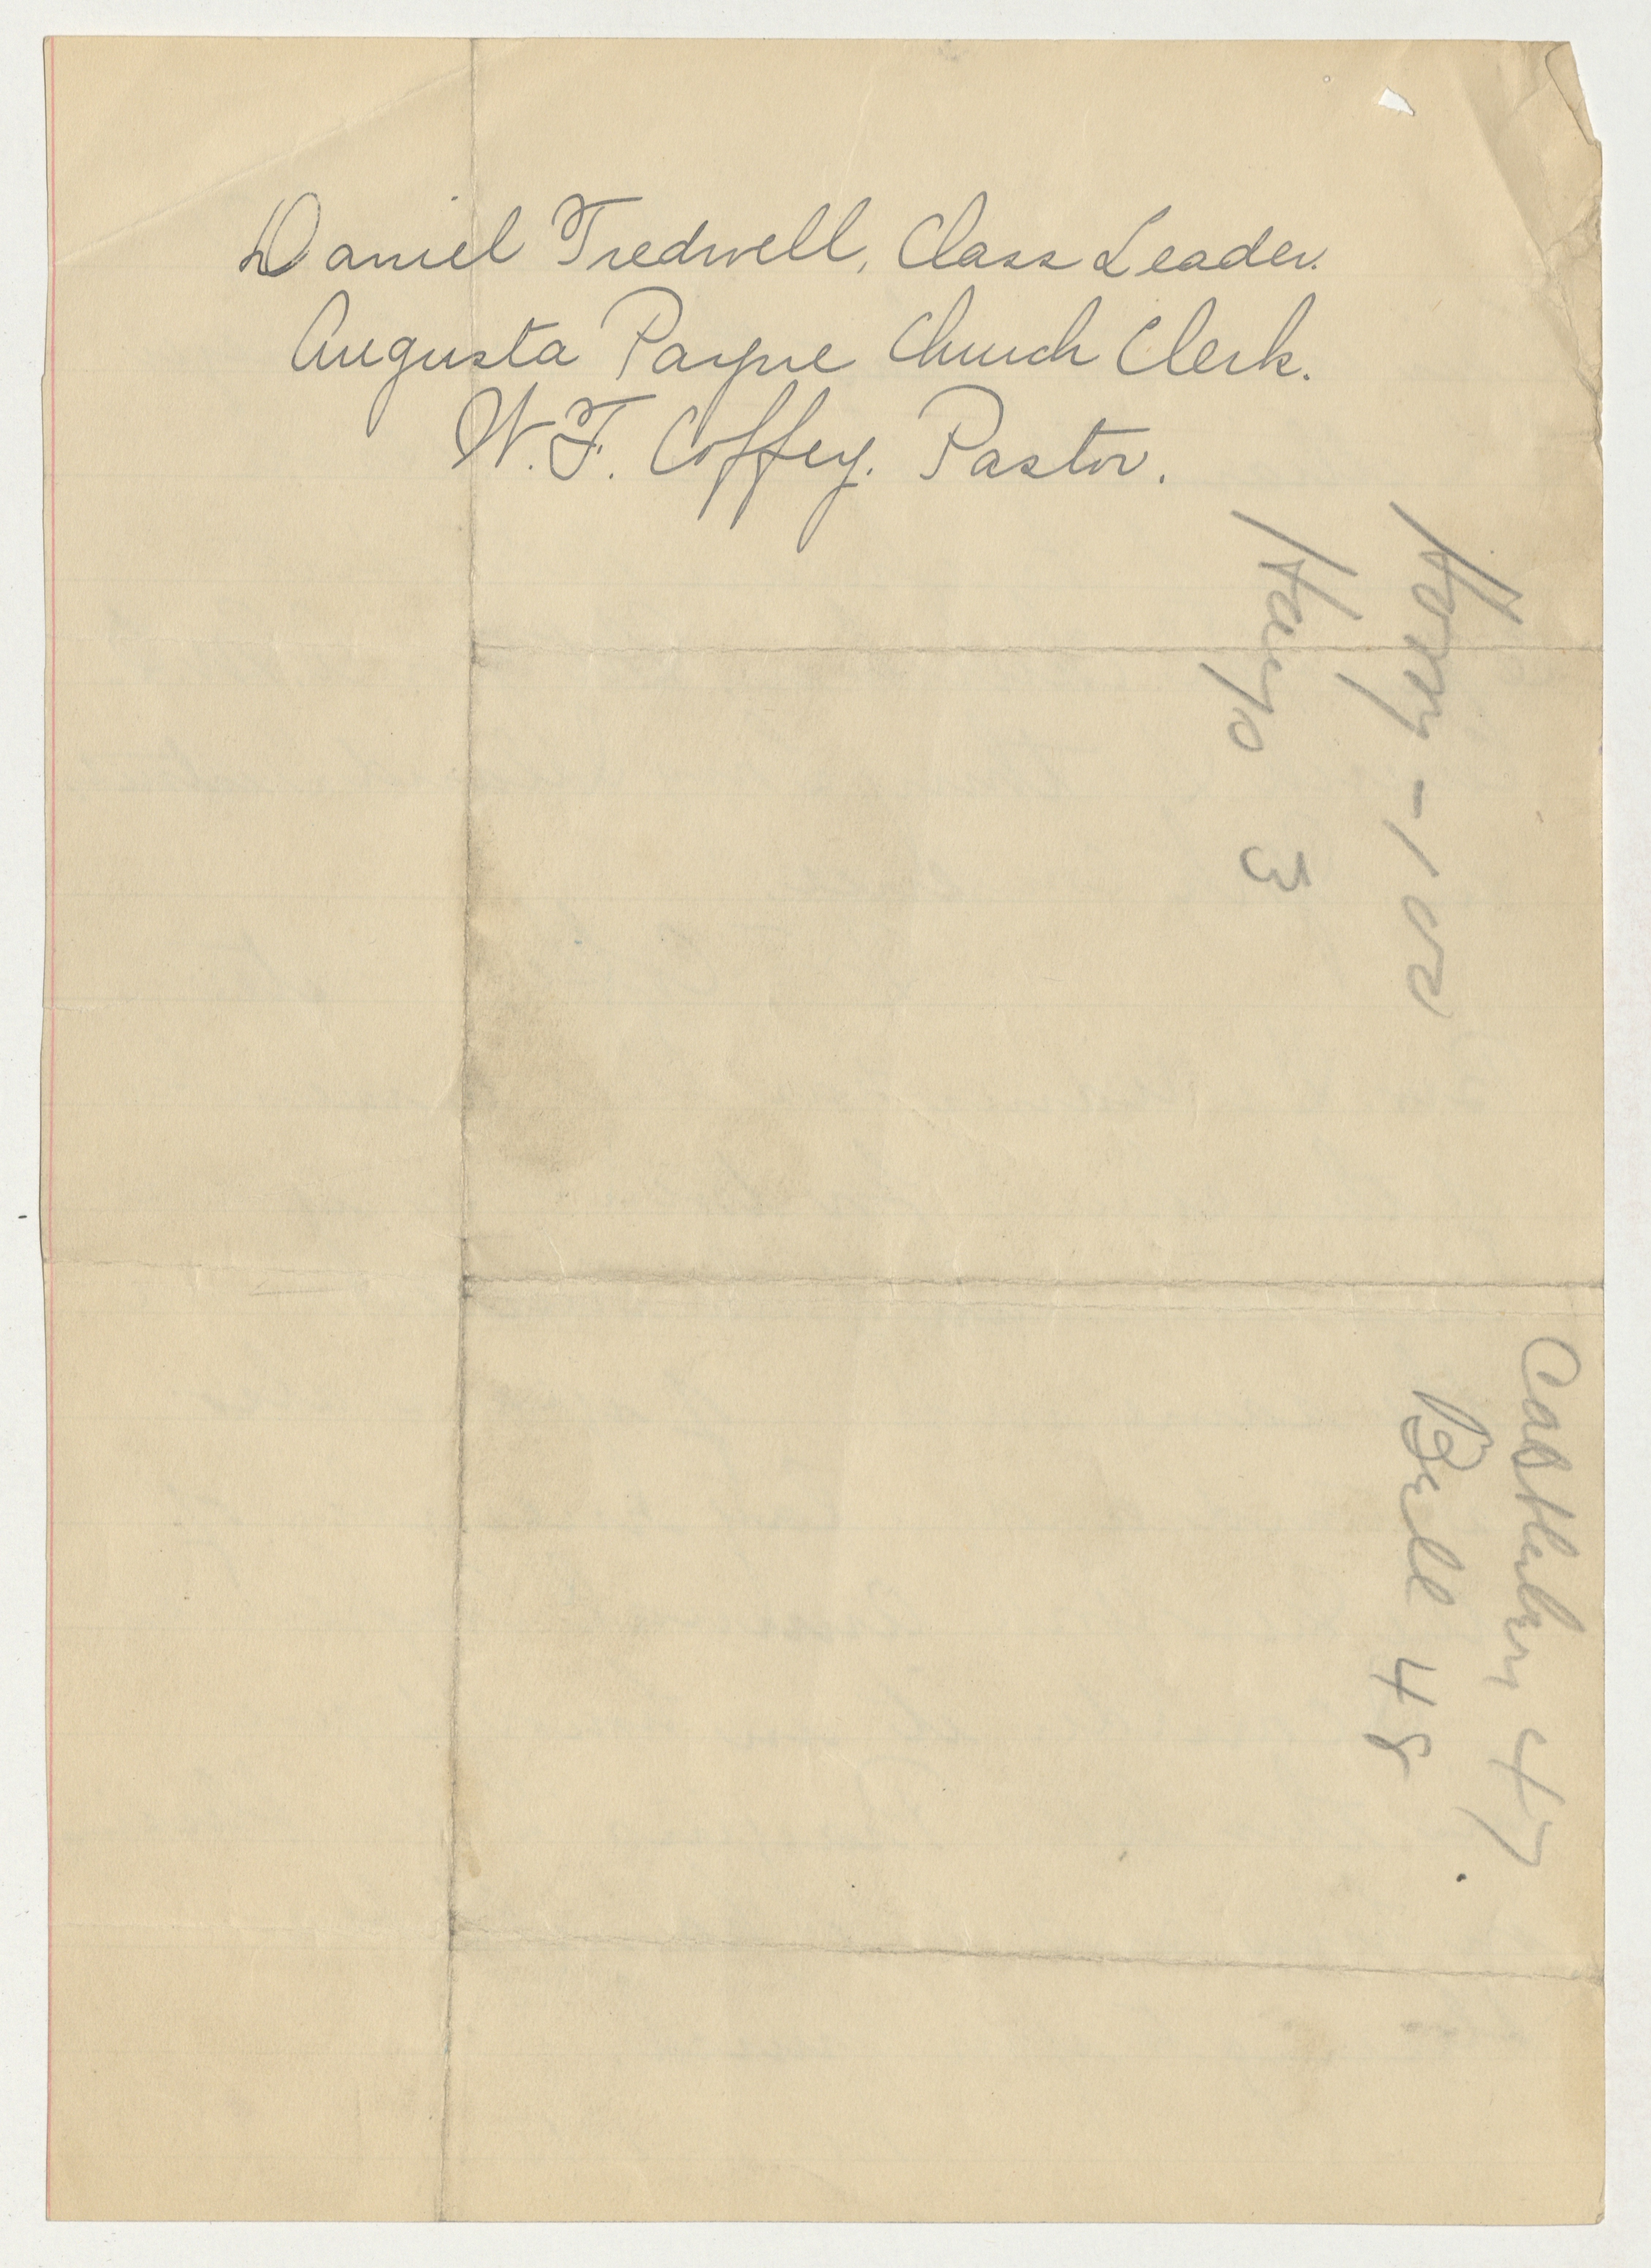 Daniel Tredwell, Class Leader.
Augusta Payne Church Clerk.
W. F. Coffey. Pastor.
Harry - 102
Hayo 3
Castleberry 47.
Bell 48